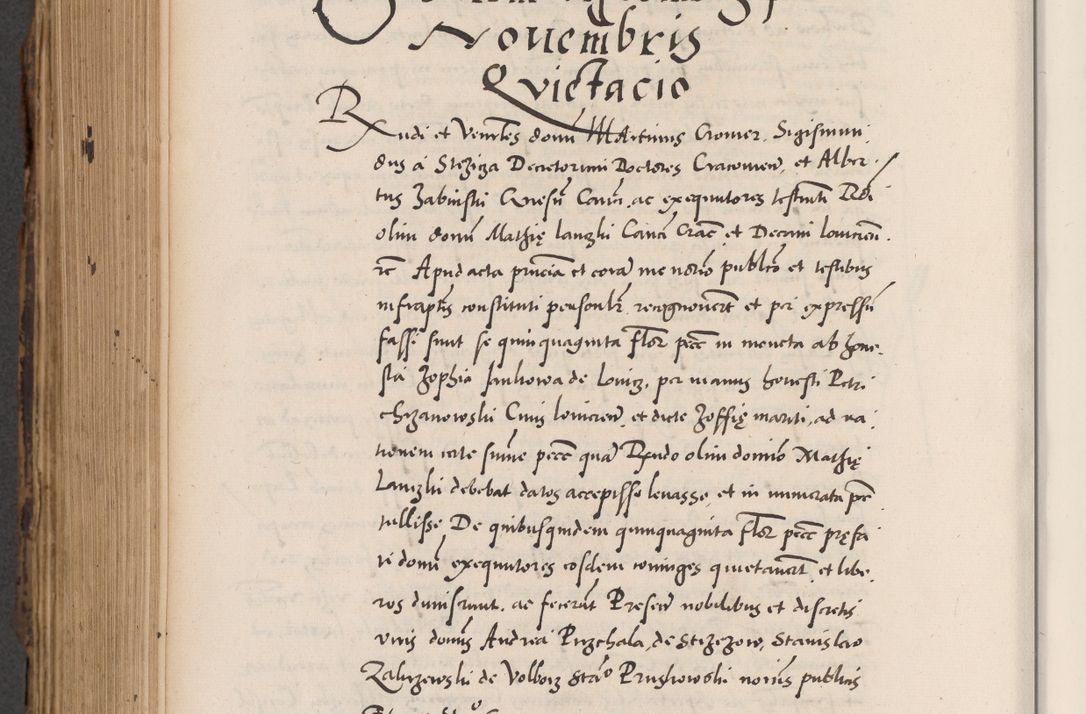 Nouembris
Qvietacio
Rndi et Venrles domi Martinus Cromer. Sigismun
dus á Stęzicza Decretorum Doctores Cracouien, et Alber
tus Zabinski Gnesn Canci, ac exequutores testamti Rdi
olim domi Mathię Lanczki Canci Crac et Decani louicien.
rc Apud acta pncia et cora me notrio publco et testibus
infraptis constituti personalr recognouert et per expressu
fassi sunt se quinquaginta flor pecc in moneta ab hone,
sta Zophia Jankowa de Louicz, per manus honesti Petri
Chrzanowski Ciuis louicien, et dicte Zoffię mariti, ad ra,
tionem certe sume pecc qua Rndo olim domino Mathię
Lanczki debebat datos accepisse leuasse, et in numerata pec
tullisse, De quibusquidem quinquaginta flor pecc pręfa
ti domi exequutores eosdem coniuges quietauert, et libe,
ros dimiserunt. ac fecerut Presen nobilibus et discretis
viris domis Andrea Puzchala, de Strzezow, Stanislao
Zakrzewski de Volborz Stao Pruskowski notris publicis